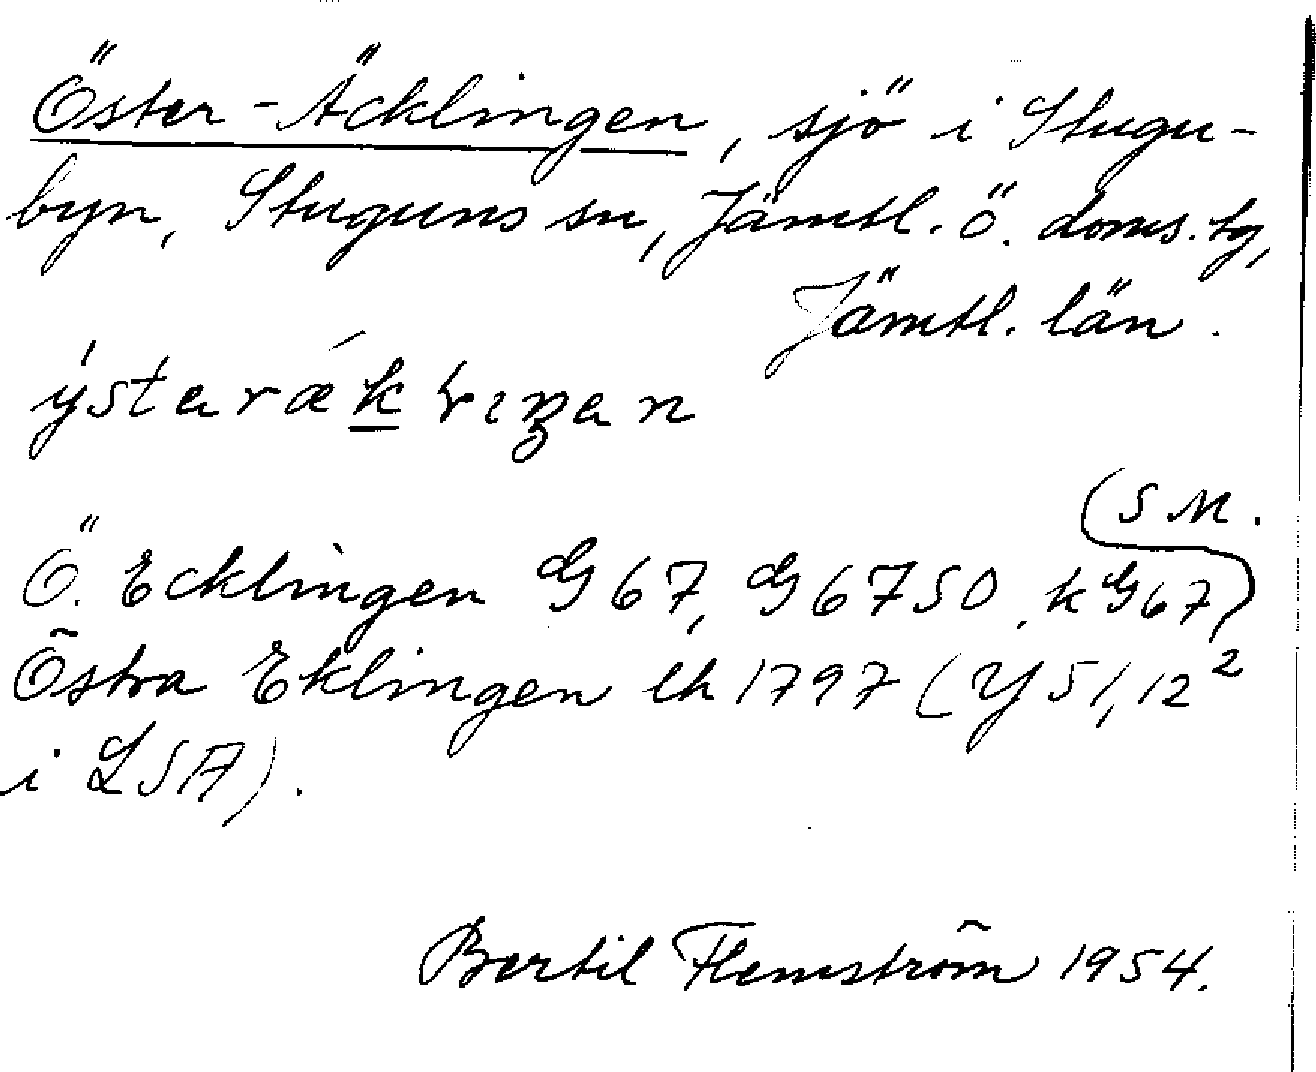 Öster-Äcklingen, sjö i Stugu-
byn, Stuguns sn, Jämtl. ö. doms. tg,
Jämtl. län.
(S M.
Ö. Ecklingen G 67, G 67 SO, k G 67)
Östra Eklingen lh 1797 (Y 51, 12²
i LSA).
Bertil Flemström 1954.